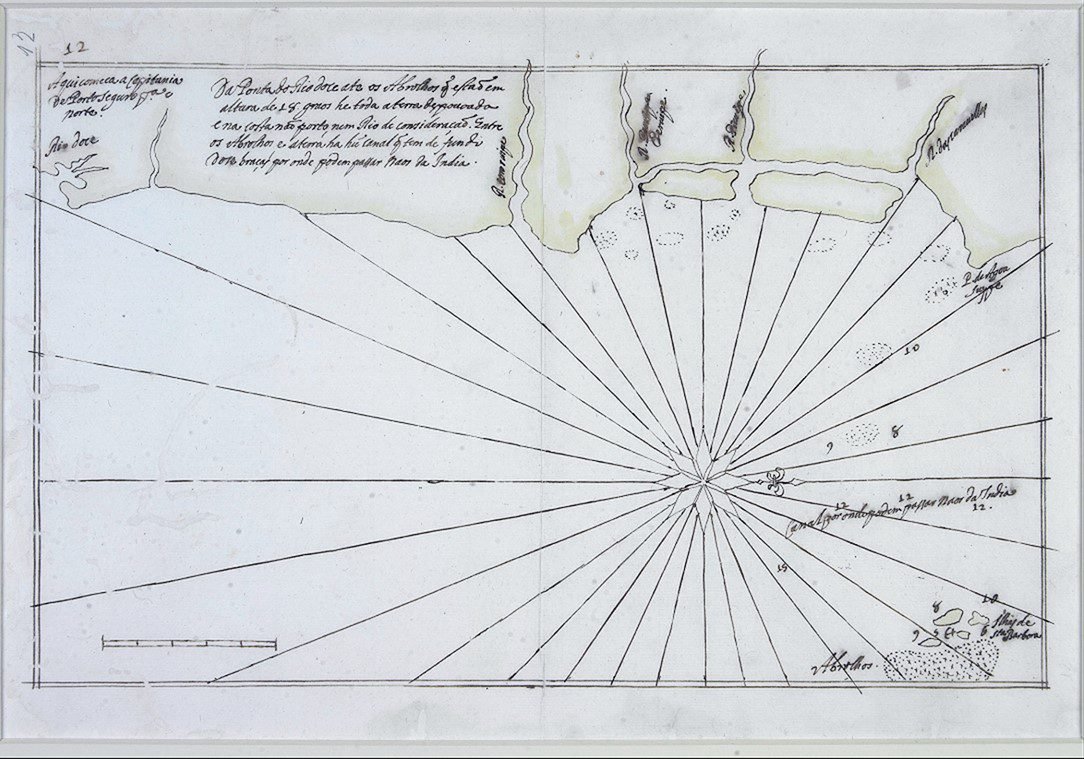 12
12
Aqui comeca a Capitania
de Porto Seguro pª o
norte.
Rio doce
Da Ponta do Rio doce ate os Abrolhos q̃ estaõ em
altura de 18 graos he toda a terra despouoada
e na costa não porto nem Rio de consideracaõ. Entre
os Abrolhos e aterra ha hũ canal q̃ tem de fundo
doze braças por onde podem passar Naos da India.
R.
R.
R.
R.
P. de
10
9
8
12
12
Canal por onde podem passar Naos da India
12.
15
8
10
9
5
6
Ilhas de
sta Barbora
Abrolhos.